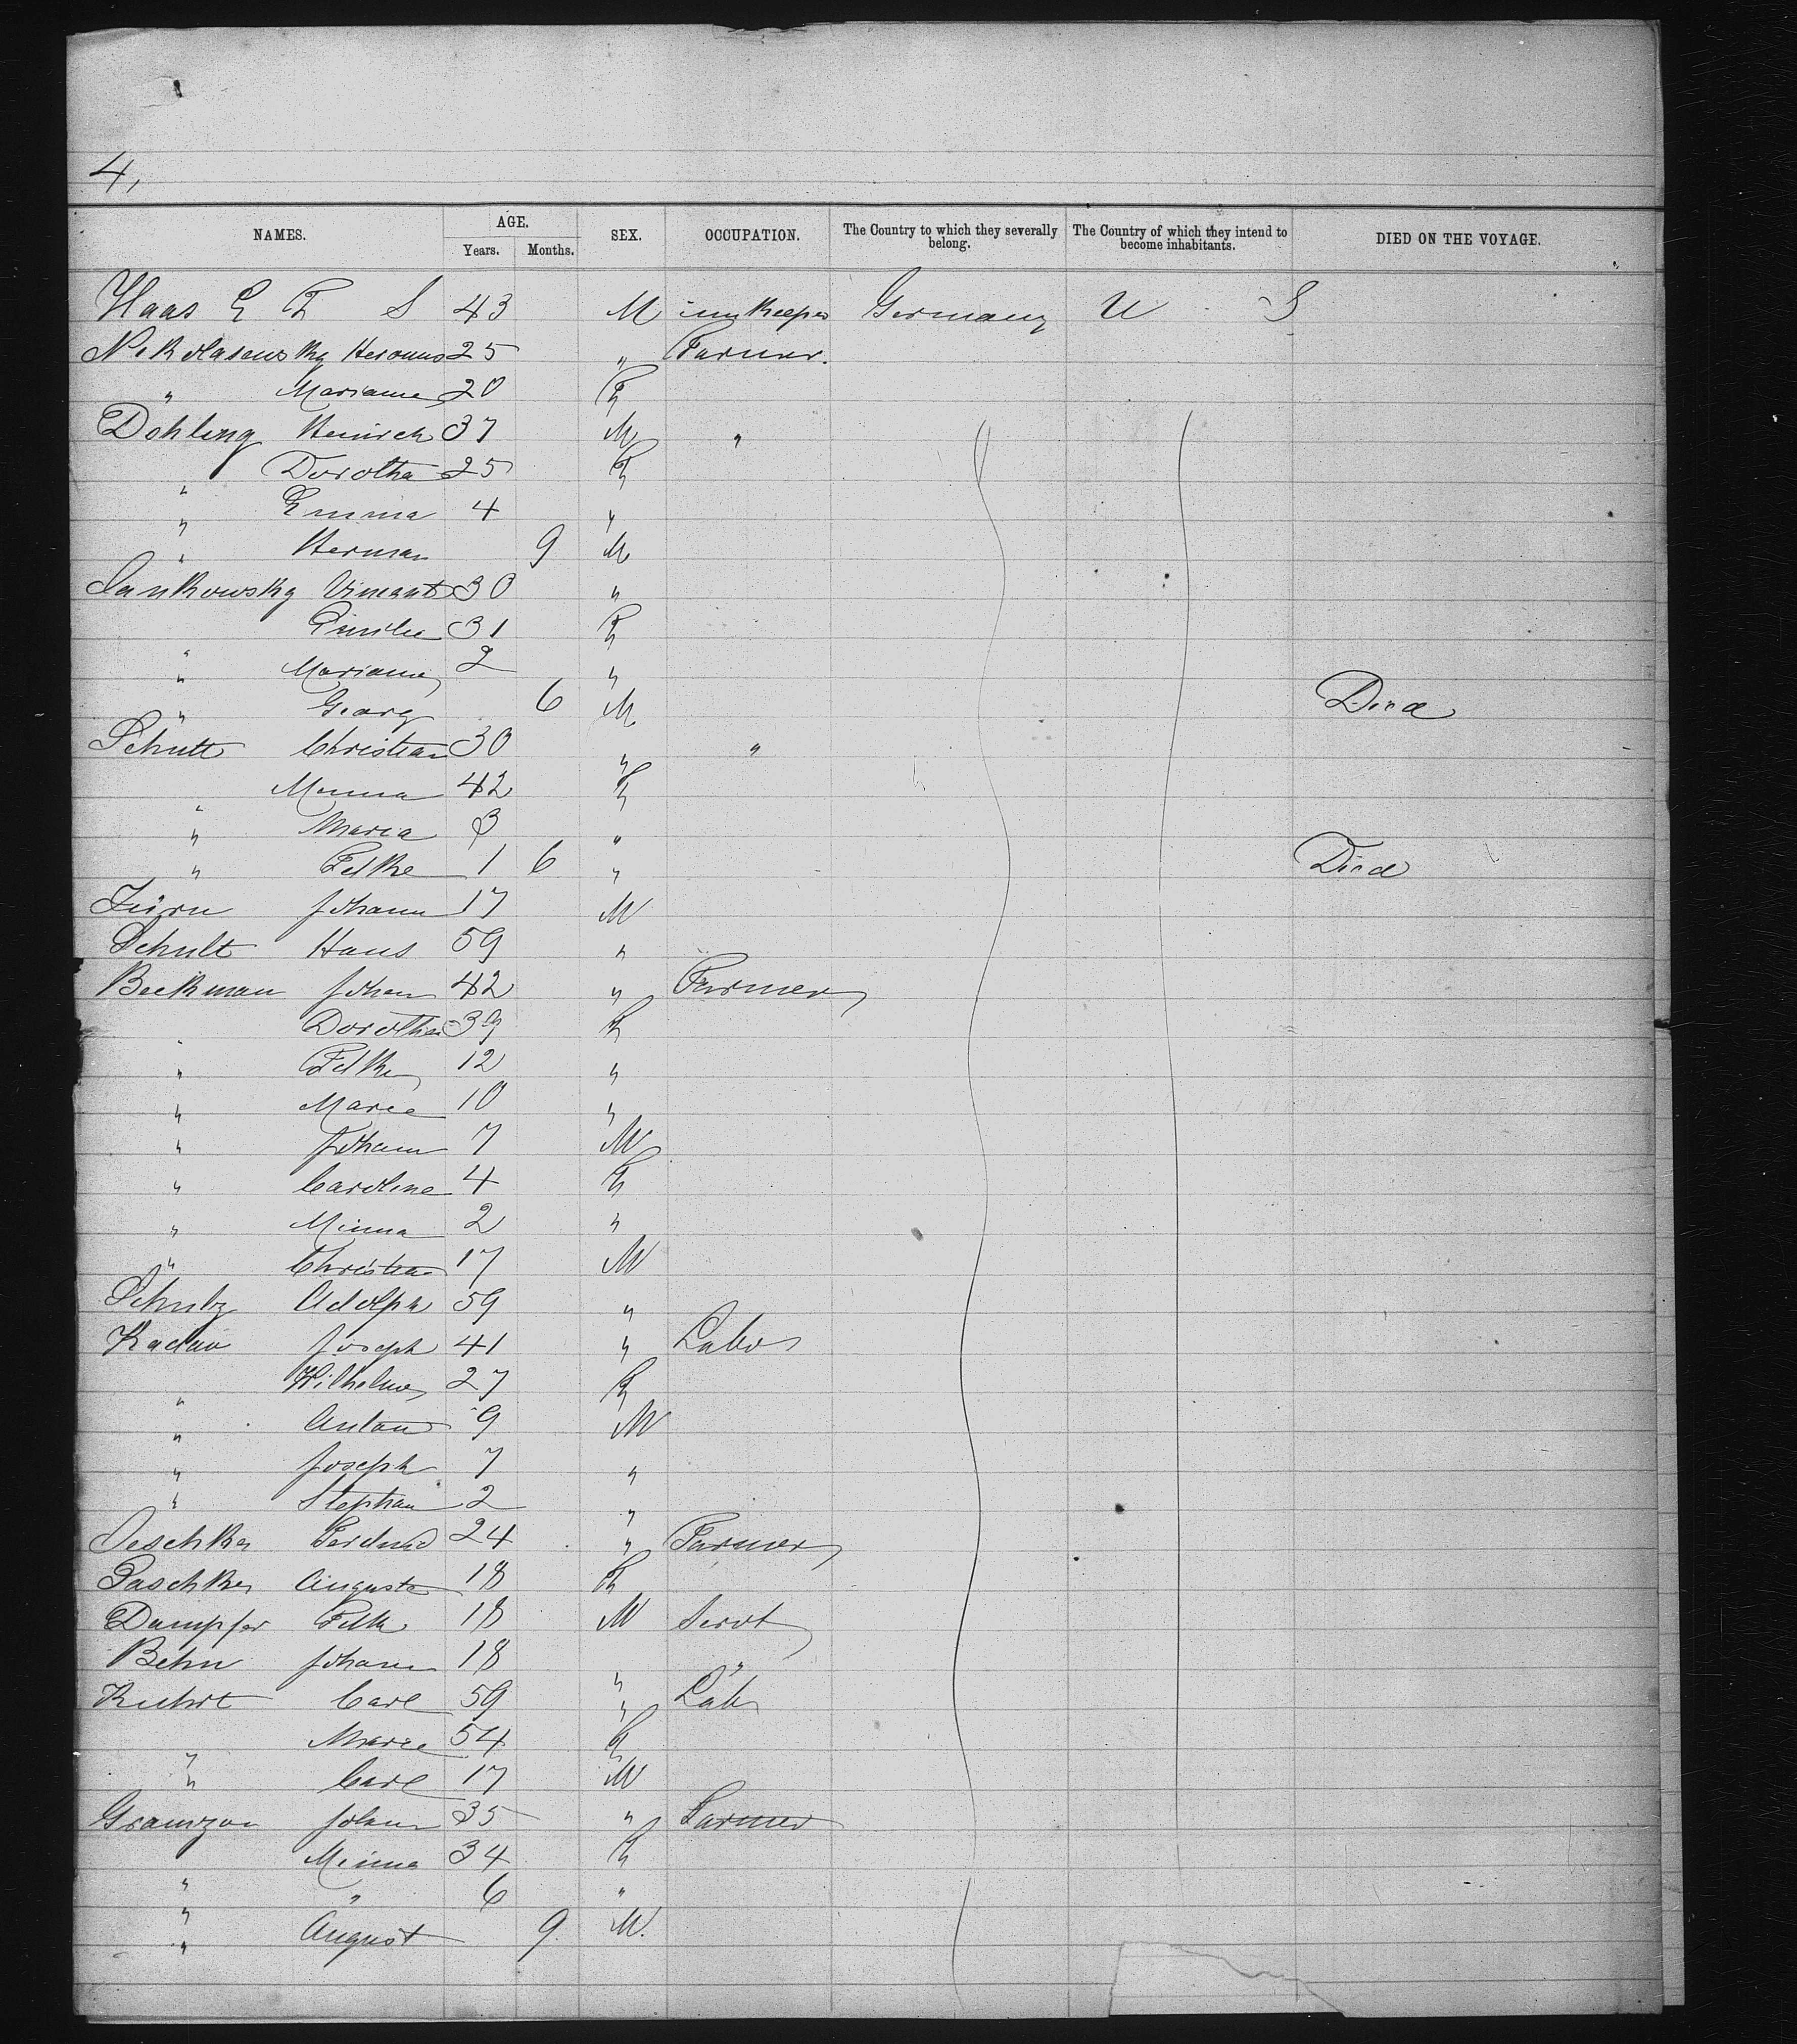 4,
NAMES. AGE. Years. Months. SEX. OCCUPATION. The Country to which they severally belong. The Country of which they intend to become inhabitants. DIED ON THE VOYAGE.
Haas E F S 43 M innkeeper Germany U S
Nikolasensky 25 " Farmer.
" Marianne 20 F
Dohling Heinrich 37 M "
" Dorothea 25 F
" Emma 4 "
" Herman 9 M
Jankowsky Vincent 30 "
" Emilie 31 F
" Marianne 2 "
" Georg 6 M Died
Schutt Christian 30 " "
" Minna 42 F
" Maria 3 "
" Felke 1 6 " Died
Johann 17 M
Schult Hans 59 "
Beckman Johan 42 " Farmer
" Dorothea 39 F
" Felke 12 "
" Marie 10 "
" Johann 7 M
" Caroline 4 F
" Minna 2 "
" Christian 17 M
Schulz Adolph 59 "
Kadau Joseph 41 " Labor
" Wilhelme 27 F
" Anton 9 M
" Joseph 7 "
" Stephan 2 "
Oeschke Ferdinand 24 " Farmer
Paschke Auguste 18 F
Dampfer 18 M Servt
Behn Johann 18 " "
Kuhrt Carl 59 " Lab
" Marie 54 F
" Carl 17 M
Gramzow Johann 35 " Farmer
" Minna 34 F
" " 6 "
" August 9 M.